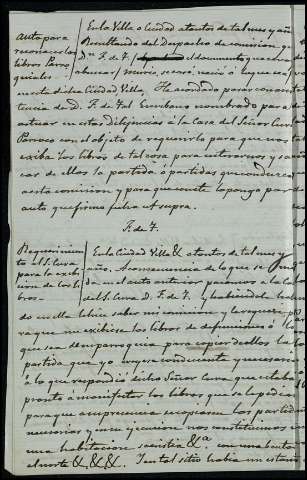 Auto para
reconocer los
libros Parro
quiales.
En la Villa o Ciudad a tantos de tal mes y año
Resultando del Despacho de comision, q.
Dn. F. de T. / el documento que con
/ murio, se casó, nació ó lo que sea/
en esta dicha Ciudad Villa, Ha acordado pasar con asis
tencia de D. F. de Tal Escribano nombrado para
actuar en estas diligencias á la Casa del Señor Cura
Parroco con el objeto de requerirle para que nos
exiba los libros de tal cosa para enterarnos y sa
car de ellos la partida ó partidas que conduzcan
a esta comision y para que conste lo pongo por
auto que firmo fecha ut supra.
F. de T.
Requerimien
to al S. Cura
para la exibi
cion de los li
bros
En la Ciudad Villa & a tantos de tal mes y
año. A consecuencia de lo que se
da en el auto anterior pasamos a la Ca
del S. Cura D. F. de T. y habiendole
do en ella le hice saber mi comision y le requeri pa
ra que me exibiese los libros de defunciones ó lo
que sea de su parroquia para copiar de ellos la
partida que yo creyera conducente y necesaria
á lo que respondió dicho Señor Cura que estaba
pronto a manifestar los libros que se le pedian
para que a mi presencia se copiasen las partidas
necesarias y en su ejecucion nos constituimos en
una habitacion sacristia &a. con una
al norte &, &, &. En tal sitio habia un estante